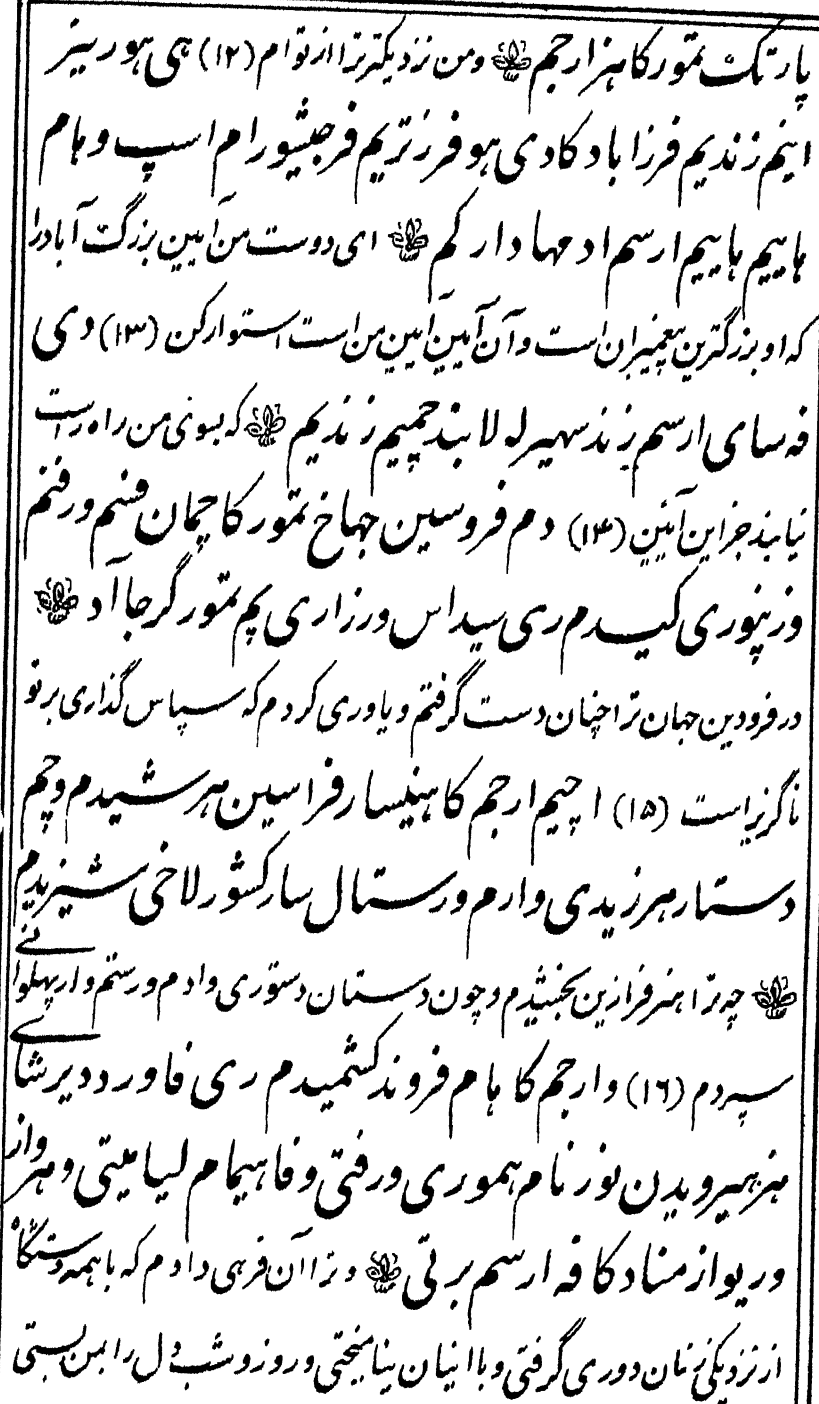 پارتک تمور کاهزارجم ومن نزدیکتر ترا از توام (۱۲) هی هورینز
اینم زندیم فرزاباد کادی هو فرزتریم فرجیشور ام اسپ وهام
هاییم هاییم ارسم اد مهادار کم ای دوست من آیین بزرگ آباد را
که او بزرگترین پیغمبران است و آن آیین آیین من است استوار کن (۱۳) دی
فه سای ارسم زند سهیر له لابند چمیم زندیم که بسوئی من راه راست
نیابند جز این آئین (۱۴) دم فروسین جهاخ تمور کاچمان فنم ورفنم
وزپنوری کیدم ری سیداس ورزاری پم تمور گرجا آد
در فرودین جهان ترا چنان دست گرفتم ویاوری کردم که سپاس گذاری برتو
ناگزیر است (۱۵) اچیم ارجم کاهنیسار فراسین هرشیدم وچم
دستار هرزیدی وارم ورستال سار کشور لاخی شیزیدم
چه ترا هنر فرازین بخشیدم وچون دستان دستوری دادم ورستم وار پهلوانی
سپردم (۱۶) وارجم کا هام فروند کشمیدم ری فاورد دیرشای
هنرهیر ویدن نورنام هموری ورفتی وفاهیمام لیامیتی وهرواز
وریواز مناد کافه ارسم برتی وترا آن فرهی دادم که باهمه دستگاه
از نزدیکی زنان دوری گرفتی وباانیان نیامیختی وروز وشب دل را بمن بستی